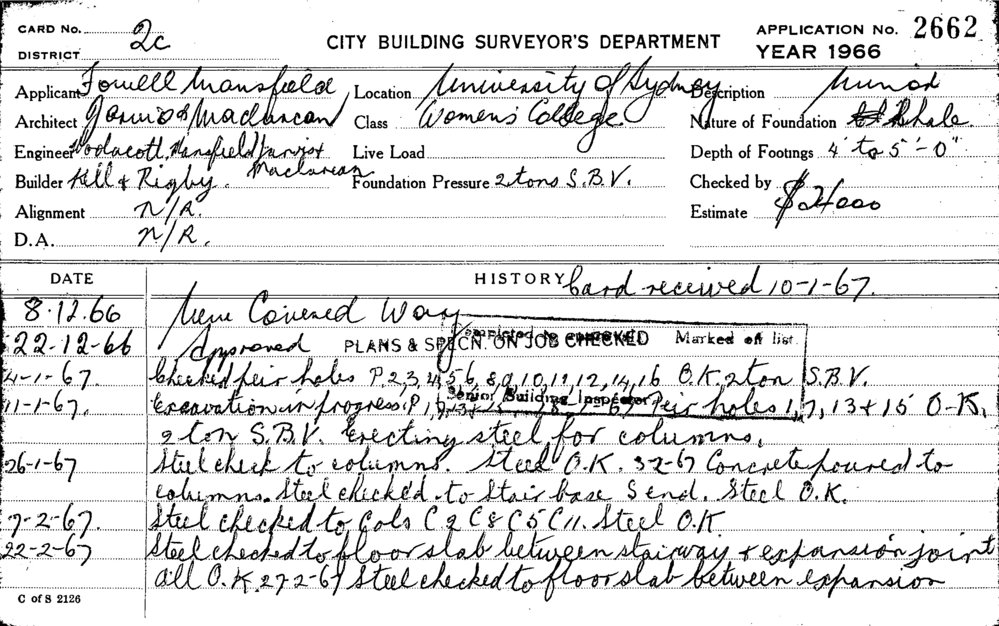 CARD No. 2c
DISTRICT
CITY BUILDING SURVEYOR'S DEPARTMENT
APPLICATION No. 2662
YEAR 1966
Applicant Fowell Mansfield
Location University of Sydney
Description Minor
Architect Jarvis & Maclurcan
Class Womens College
Nature of Foundation Shale
Engineer Woolacott, Mansfield Jarvis & Maclurcan
Live Load
Depth of Footings 4' to 5'-0"
Builder Kell & Rigby.
Foundation Pressure 2 tons S.B.V.
Checked by
Alignment N/R.
Estimate $24000
D.A. N/R.
DATE
HISTORY Card received 10-1-67.
8.12.66 New Covered Way
22-12-66 Approved
PLANS & SPECN. ON JOB CHECKED Marked off list
Completed
Senior Building Inspector
4-1-67. Checked peir holes P 2, 3, 4, 5, 6, 8, 9, 10, 11, 12, 14, 16 O.K. 2 ton S.B.V.
11-1-67. Excavation in progress. Peir holes 1, 7, 13 + 15 O-K,
2 ton S.B.V. Erecting steel for columns,
26-1-67 Steel check to columns. Steel O.K. 3-2-67 Concrete poured to
columns. Steel checked to Stair base S end. Steel O.K.
7-2-67. Steel checked to Cols C2 C8 C5 C11. Steel O.K
22-2-67 Steel checked to floor slab between stairway & expansion joint
all O.K. 27-2-67 Steel checked to floor slab between expansion
C of S 2126